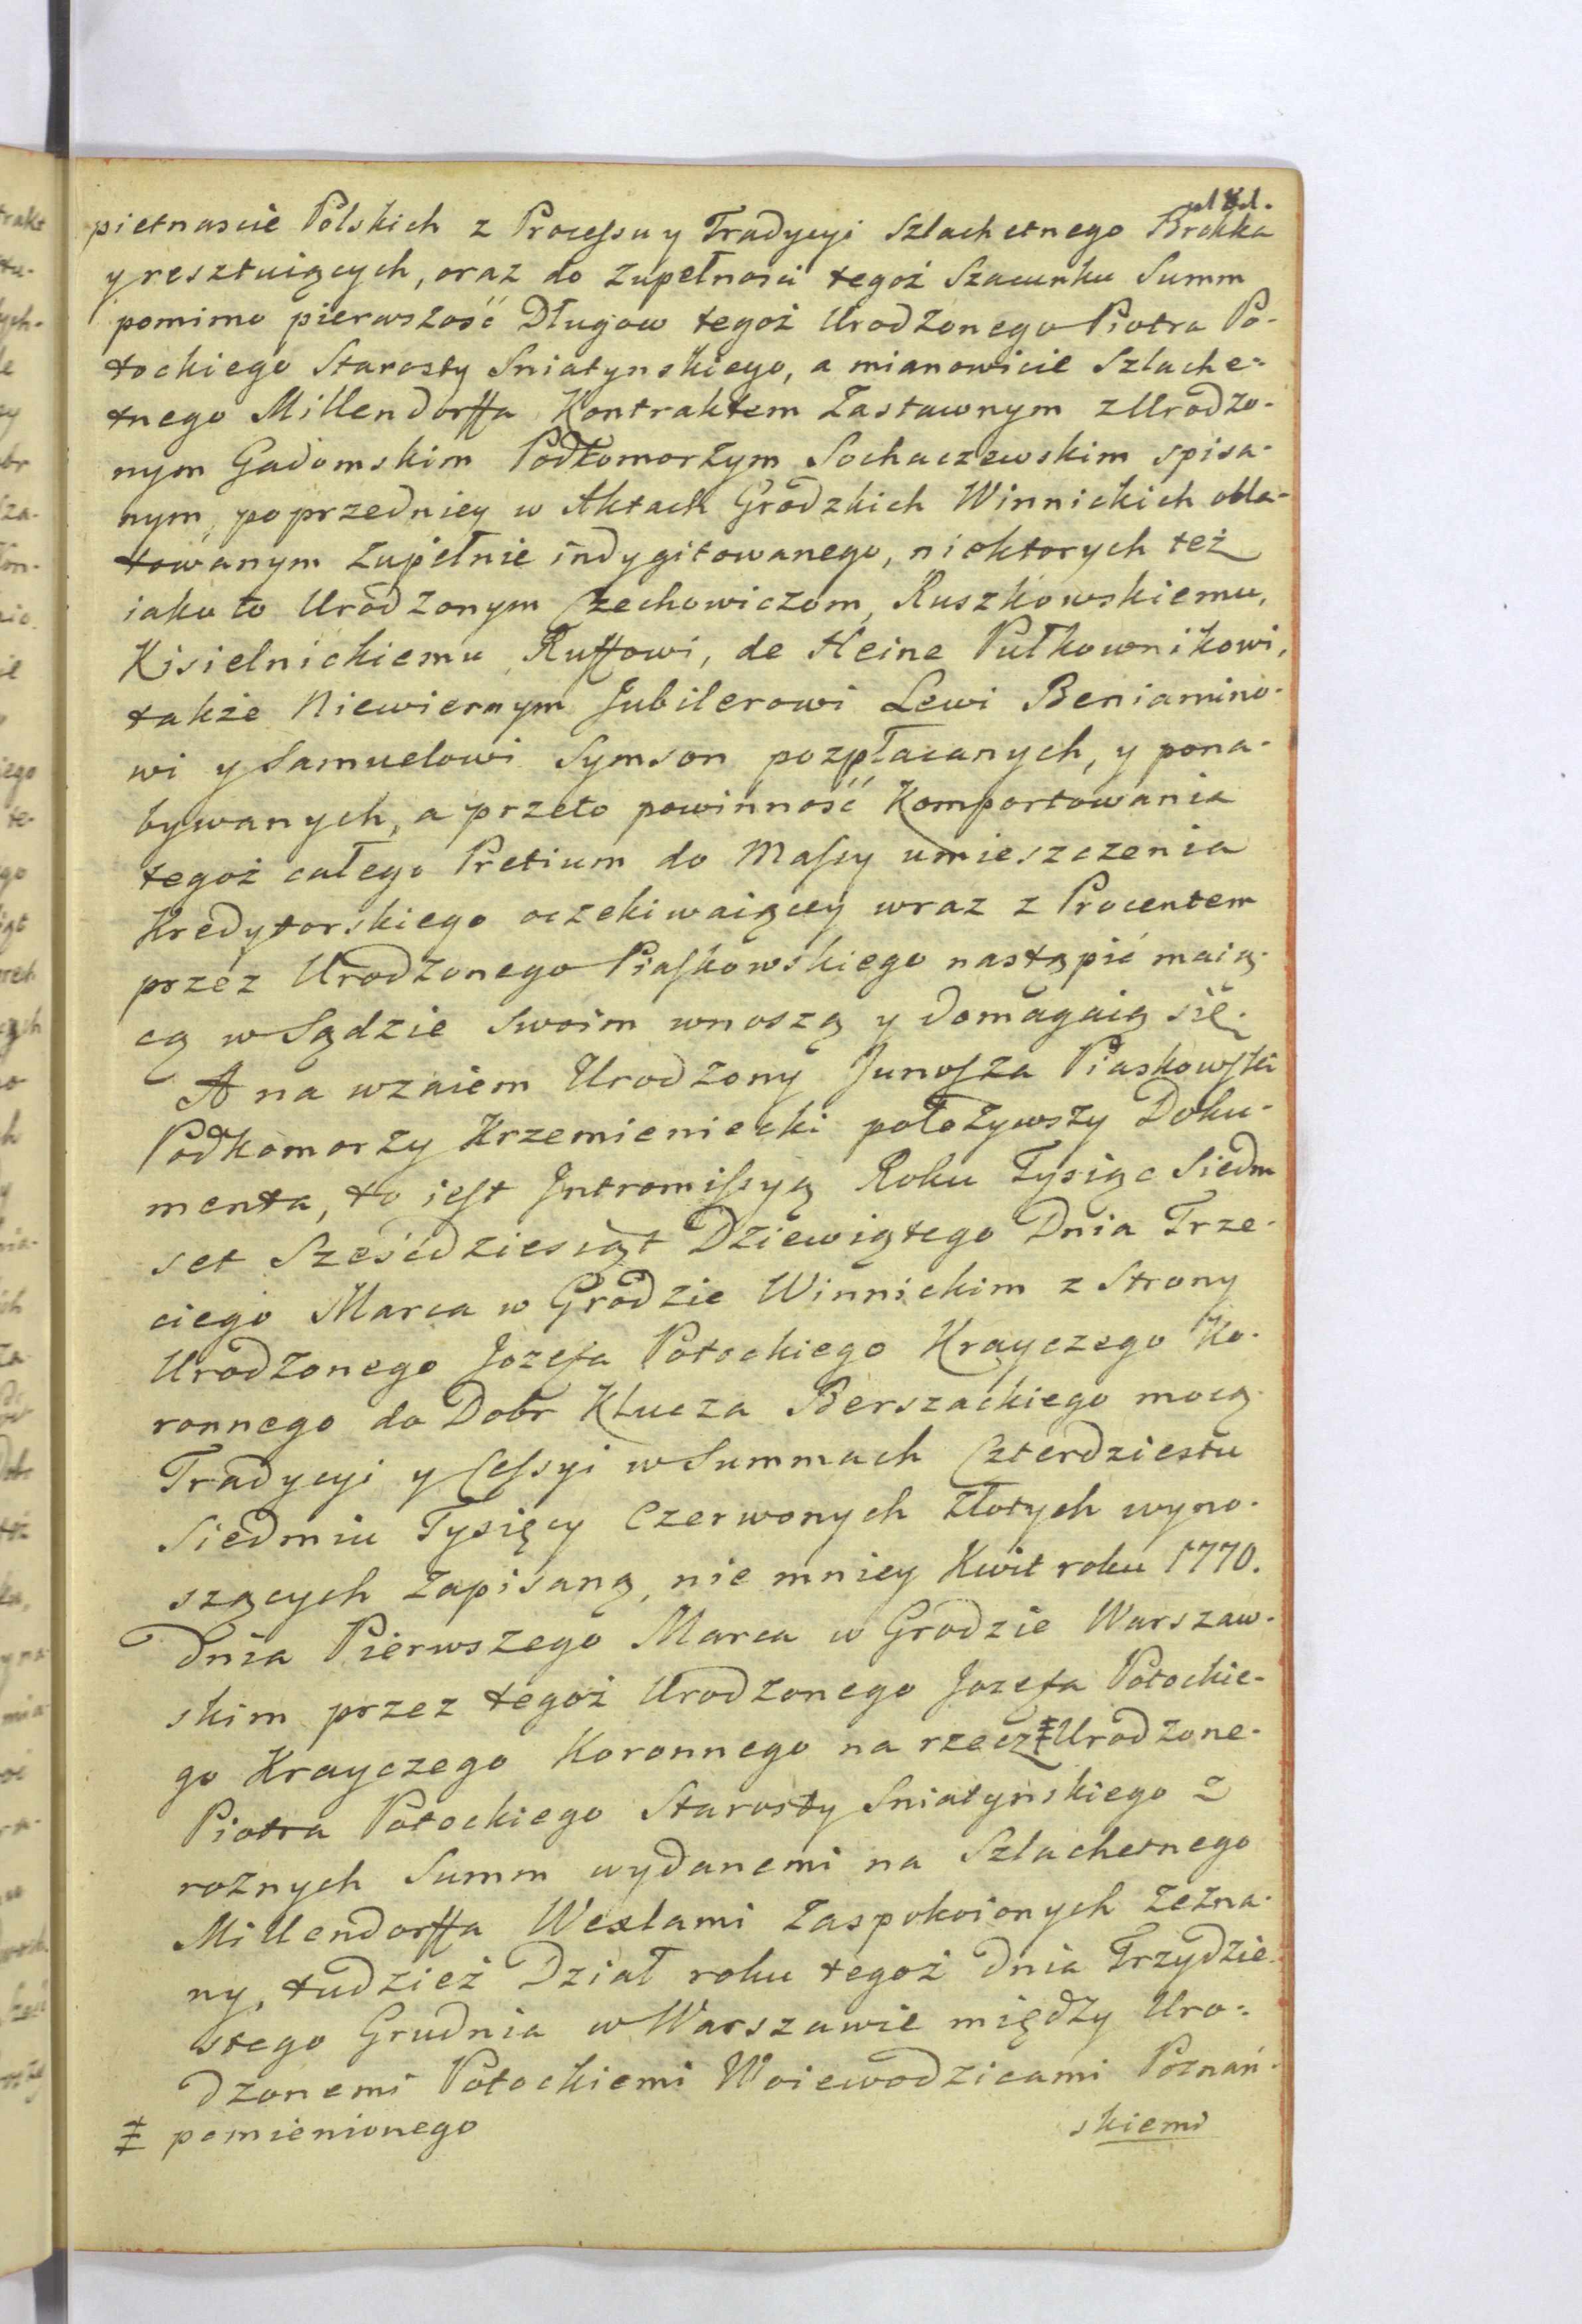 pietnascie Polskich z Processu y Tradycyi Szlachetnego Brokka
y resztuiących, oraz do Zupełnosci tegoż Szacunku Summ
pomimo pierwszość Długow tegoż Urodzonego Piotra Po-
tockiego Starosty Sniatynskiego, a mianowicie Szlache-
tnego Millendorffa Kontraktem Zastawnym z Urodzo-
nym Gadomskim Podkomorzym Sochaczewskim spisa-
nym, poprzedniey w Aktach Grodzkich Winnickich obla-
towanym Zupełnie indygitowanego, niektorych też
iako to Urodzonym Czechowiczom, Ruszkowskiemu,
Kisielnickiemu, Ruffowi, de Heine Pułkownikowi,
także Niewiernym Jubilerowi Lewi Beniamino-
wi y Samuelowi Symson pozpłacanych, y pona-
bywanych, a przeto powinność Komportowania
tegoż całego Pretium do Massy umieszczenia
Kredytorskiego oczekiwaiącey wraz z Procentem
przez Urodzonego Piaskowskiego nastąpić maią-
cą w Sądzie Swoim wnoszą y domagaią się.
A na wzaiem Urodzony Junosza Piaskowski
Podkomorzy Krzemieniecki położywszy Doku-
menta, to iest Intromissyą Roku Tysiąc Siedm
set Sześćdziesiąt Dziewiątego Dnia Trze-
ciego Marca w Grodzie Winnickim z Strony
Urodzonego Jozefa Potockiego Krayczego Ko-
ronnego do Dobr Klucza Berszackiego mocą
Tradycyi y Cessyi w Summach Czterdziestu
Siedmiu Tysięcy Czerwonych Złotych wyno-
szących Zapisaną, nie mniey Kwit roku 1770.
Dnia Pierwszego Marca w Grodzie Warszaw-
skim przez tegoż Urodzonego Jozefa Potockie-
go Krayczego Koronnego na rzecz ‡ Urodzone-
Piotra Potockiego Starosty Sniatynskiego z
rożnych Summ wydanemi na Szlachetnego
Millendorffa Wexlami Zaspokoionych Zezna-
ny, tudzież Dział roku tegoż dnia Trzydzie-
stego Grudnia w Warszawie między Uro-
dzonemi Potockiemi Woiewodzicami Poznań-
‡ pomienionego
skiemi